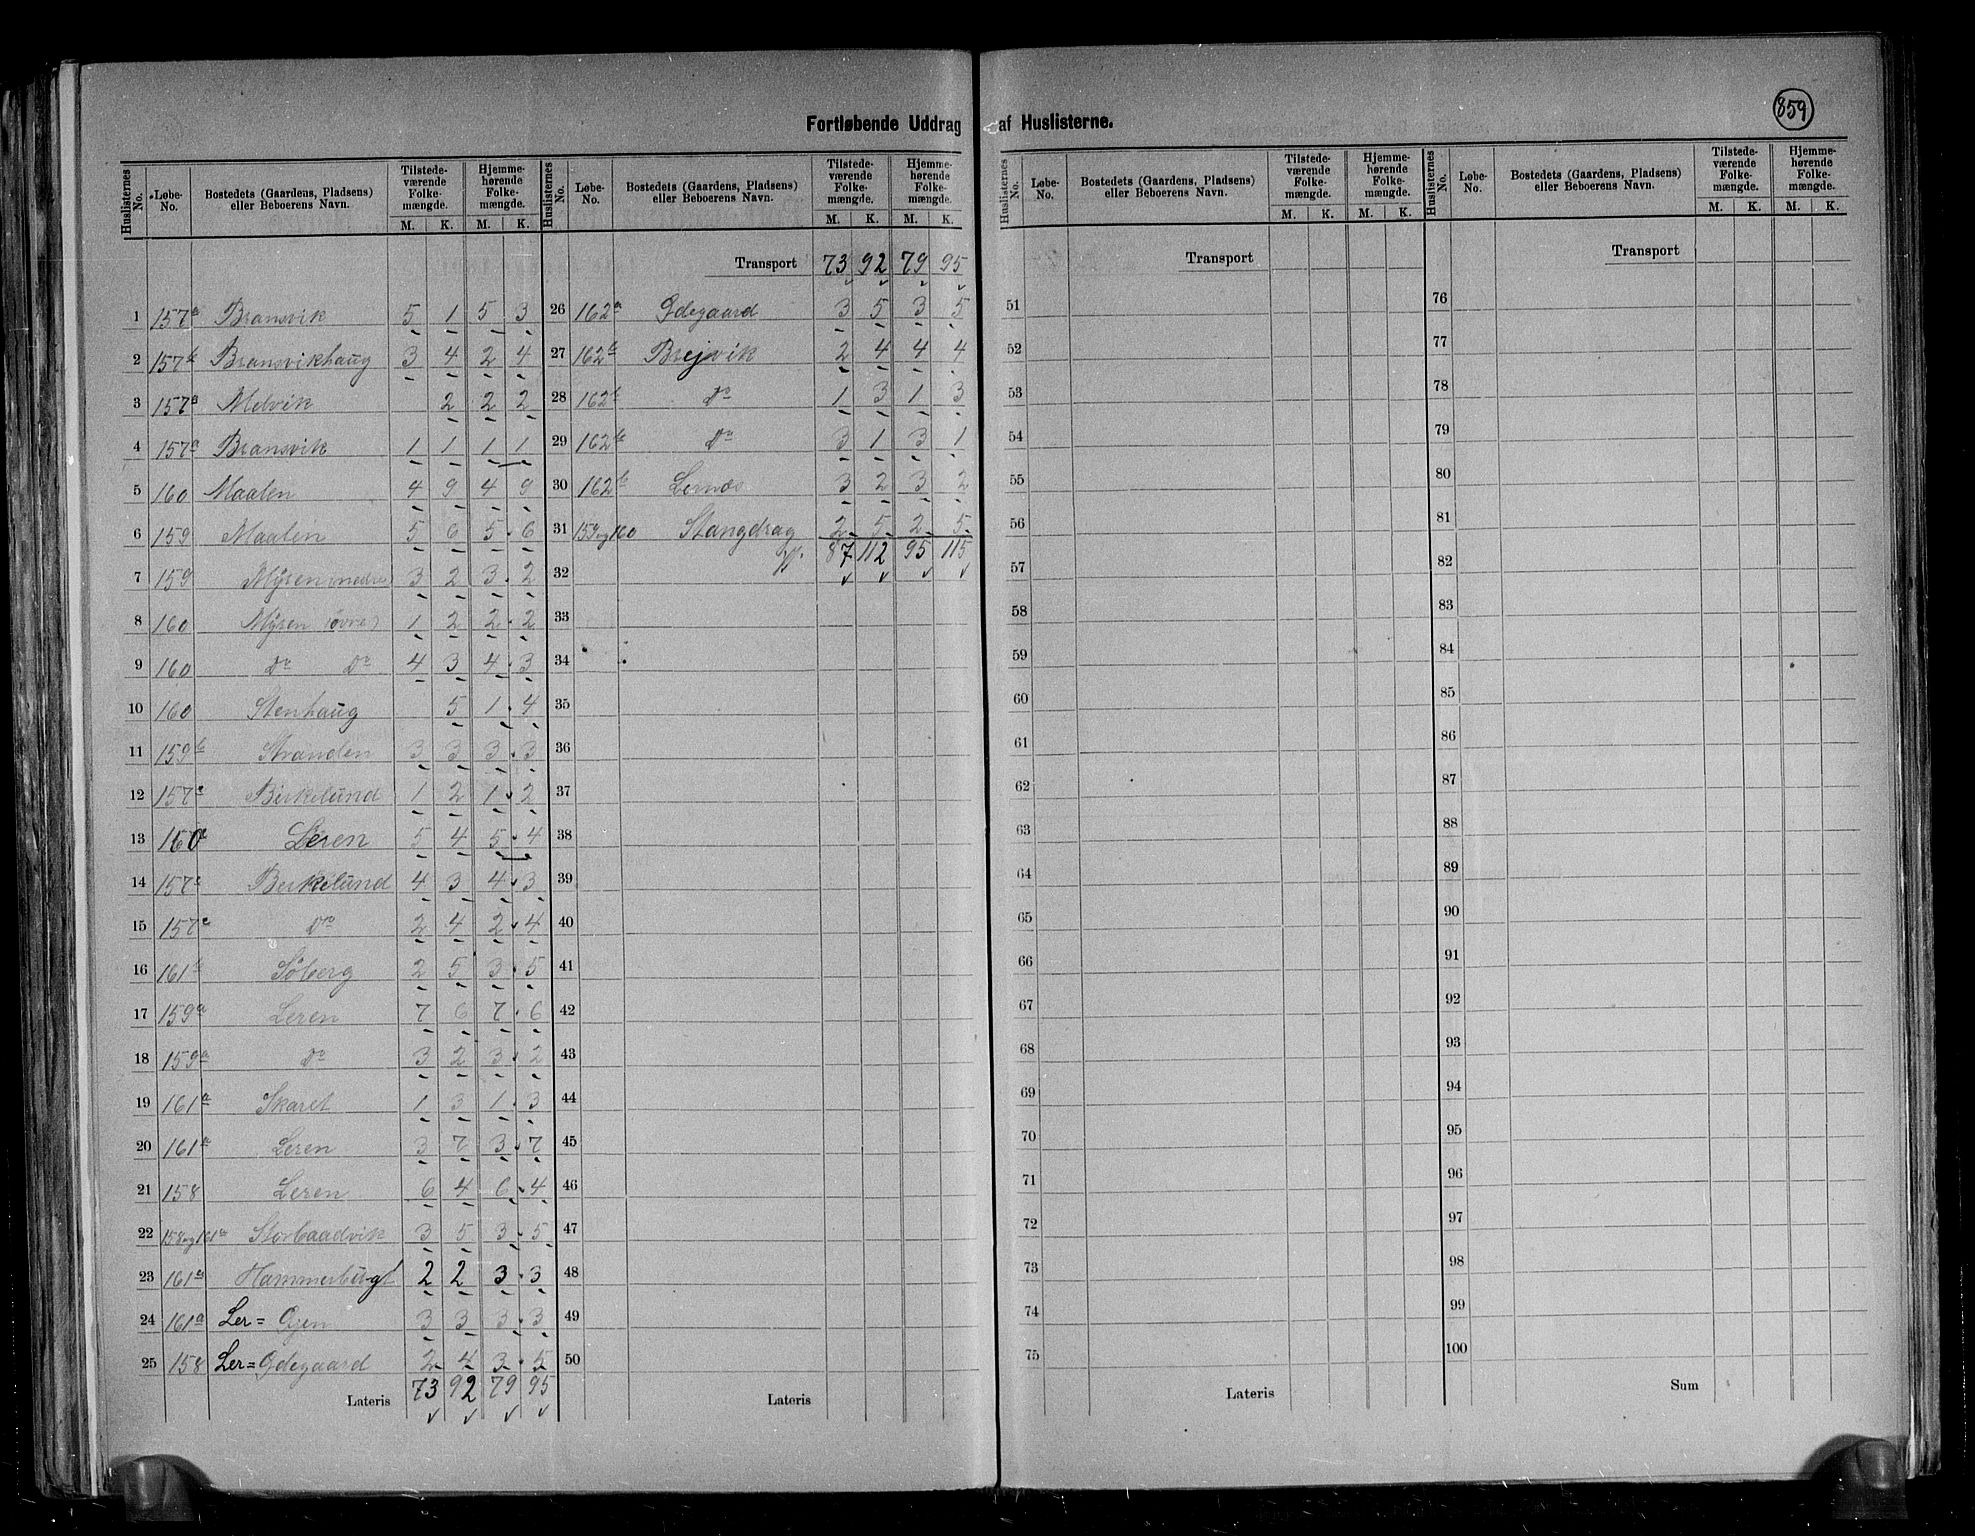 859
Fortløbende Uddrag af Huslisternes.
Huslisternes No. Løbe-No. Bostedets (Gaardens, Pladsens) eller Beboerens Navn. Tilstede-værende Folke-mængde. M. K. Hjemme-hørende Folke-mængde. M. K.
Huslisternes No. Løbe-No. Bostedets (Gaardens, Pladsens) eller Beboerens Navn. Tilstede-værende Folke-mængde. M. K. Hjemme-hørende Folke-mængde. M. K.
Huslisternes No. Løbe-No. Bostedets (Gaardens, Pladsens) eller Beboerens Navn. Tilstede-værende Folke-mængde. M. K. Hjemme-hørende Folke-mængde. M. K.
Huslisternes No. Løbe-No. Bostedets (Gaardens, Pladsens) eller Beboerens Navn. Tilstede-værende Folke-mængde. M. K. Hjemme-hørende Folke-mængde. M. K.
1 157a Bransvik 5 1 5 3
2 157b Bransvikhaug 3 4 2 4
3 157a Melvik 2 2 2
4 157a Bransvik 1 1 1 1
5 160 Maalen 4 9 4 9
6 159 Maalen 5 6 5 6
7 159 Mÿren (nedre) 3 2 3 2
8 160 Mÿren (øvre) 1 2 2 2
9 160 Do Do 4 3 4 3
10 160 Stenhaug 5 1 4
11 159b Stranden 3 3 3 3
12 157c Birkelund 1 2 1 2
13 160a Leren 5 4 5 4
14 157c Birkelund 4 3 4 3
15 157c Do 2 4 2 4
16 161b Søberg 2 5 3 5
17 159a Leren 7 6 7 6
18 159a Do 3 2 3 2
19 161a Skaret 1 3 1 3
20 161a Leren 3 7 3 7
21 158 Leren 6 4 6 4
22 158 og 161a Storbaadvik 3 5 3 5
23 161a Hammerbugt 2 2 3 3
24 161a Ler= Øjen 3 3 3 3
25 158 Ler=Ødegaard 2 4 3 5
Lateris 73 92 79 95
Transport 73 92 79 95
26 162a Ødegaard 3 5 3 5
27 162b Brejvik 2 4 4 4
28 162b Do 1 3 1 3
29 162b Do 3 1 3 1
30 162b Lernæs 3 2 3 2
31 159 og 160 Stangdrag 2 5 2 5
32 87 112 95 115
33
34
35
36
37
38
39
40
41
42
43
44
45
46
47
48
49
50
Lateris
Transport
51
52
53
54
55
56
57
58
59
60
61
62
63
64
65
66
67
68
69
70
71
72
73
74
75
Lateris
Transport
76
77
78
79
80
81
82
83
84
85
86
87
88
89
90
91
92
93
94
95
96
97
98
99
100
Sum